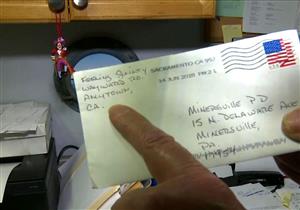 FEELING SHINEY
WAYWARD DR.
ANYTOWN,
CA.
SACRAMENTO CA 957
24 JUN 2020 PM 2 L
MINERSVILLE PD
15 N. DELAWARE AVE
MINERSVILLE,
PA.